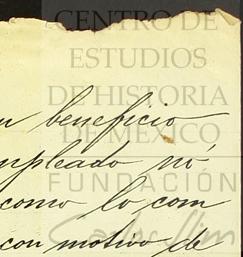 CENTRO DE
ESTUDIOS
DE HISTORIA
DE MÉXICO
FUNDACIÓN
Carlos Slim
n beneficio
mpleado nó
como lo com
con motivo de